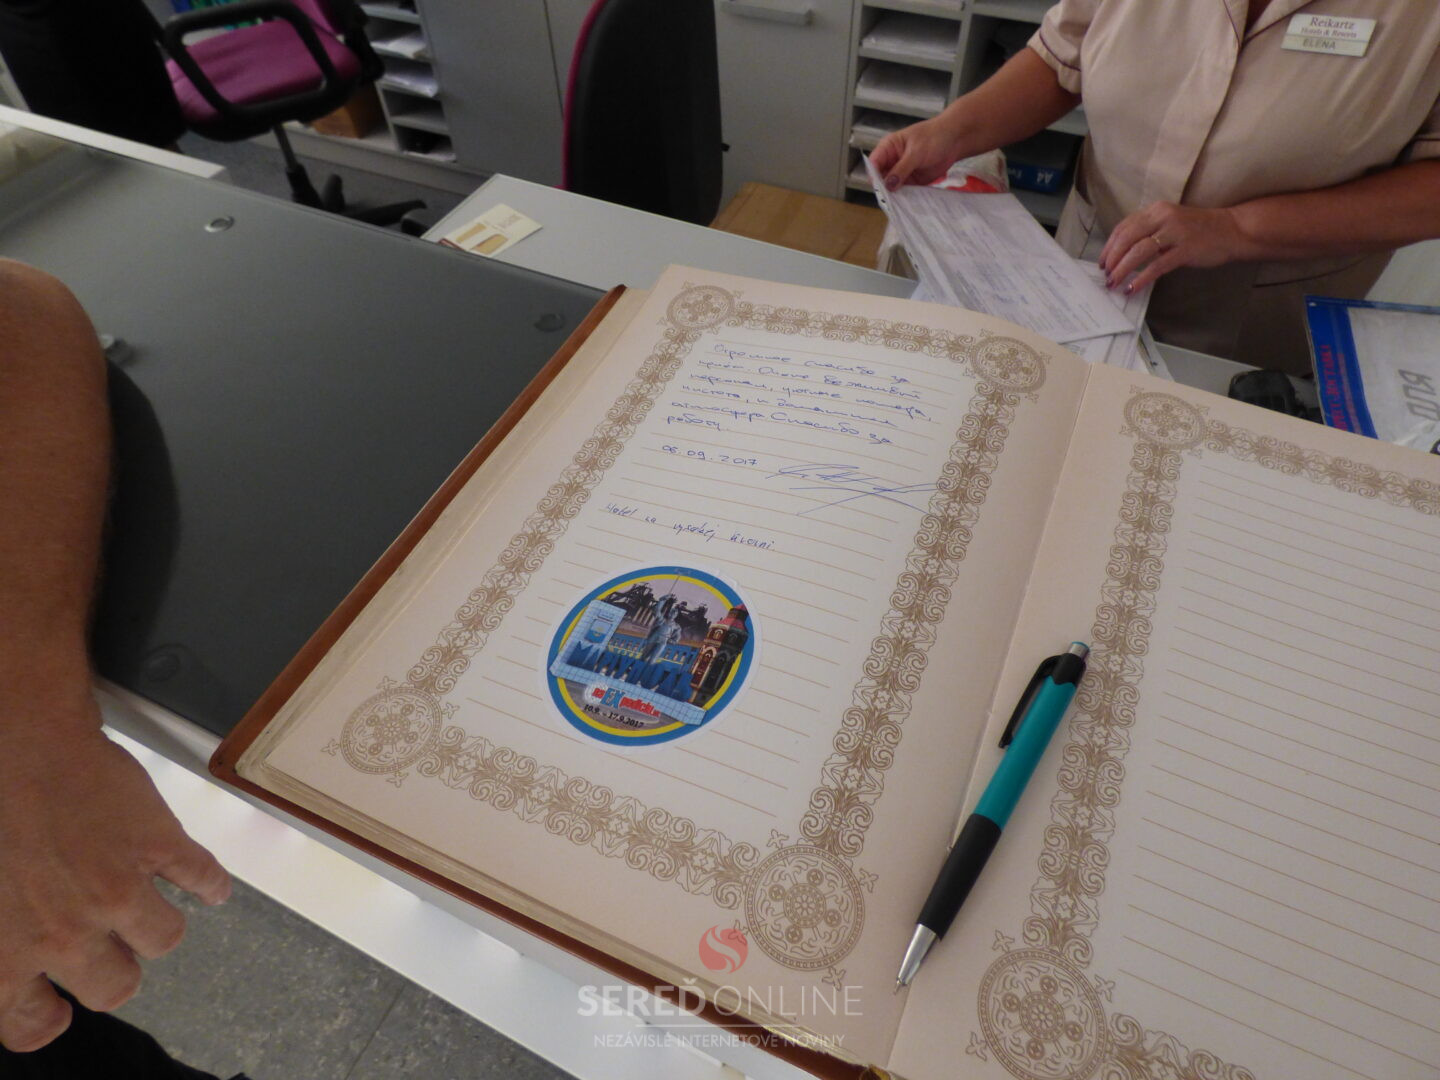 Reikartz
Hotels & Resorts
ELENA
A4
Огромное спасибо за
приём. Очень вежливый
персонал, уютные номера,
чистота, и домашняя
атмосфера Спасибо за
работу.
06.09.2017
Hotel na vysokej úrovni.
MARIUPOL
na EXpedíciu
10.9. - 17.9.2017
SEREĎONLINE
NEZÁVISLÉ INTERNETOVÉ NOVINY